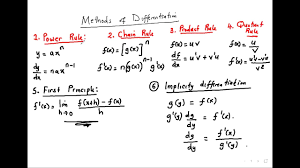 Methods of Differentiation
1. Power Rule:
y = ax^n
dy/dx = nax^(n-1)
2. Chain Rule
f(x) = [g(x)]^n
f'(x) = n[g(x)]^(n-1) g'(x)
3. Product Rule:
f(x) = uv
dy/dx = u'v + v'u
4. Quotient Rule:
f(x) = u/v
f'(x) = u'v - v'u / v²
5. First Principle:
f'(x) = lim h→0 f(x+h) - f(x) / h
6 Implicity differentiation
g(y) = f(x)
g'(y) dy/dx = f'(x)
dy/dx = f'(x) / g'(y)